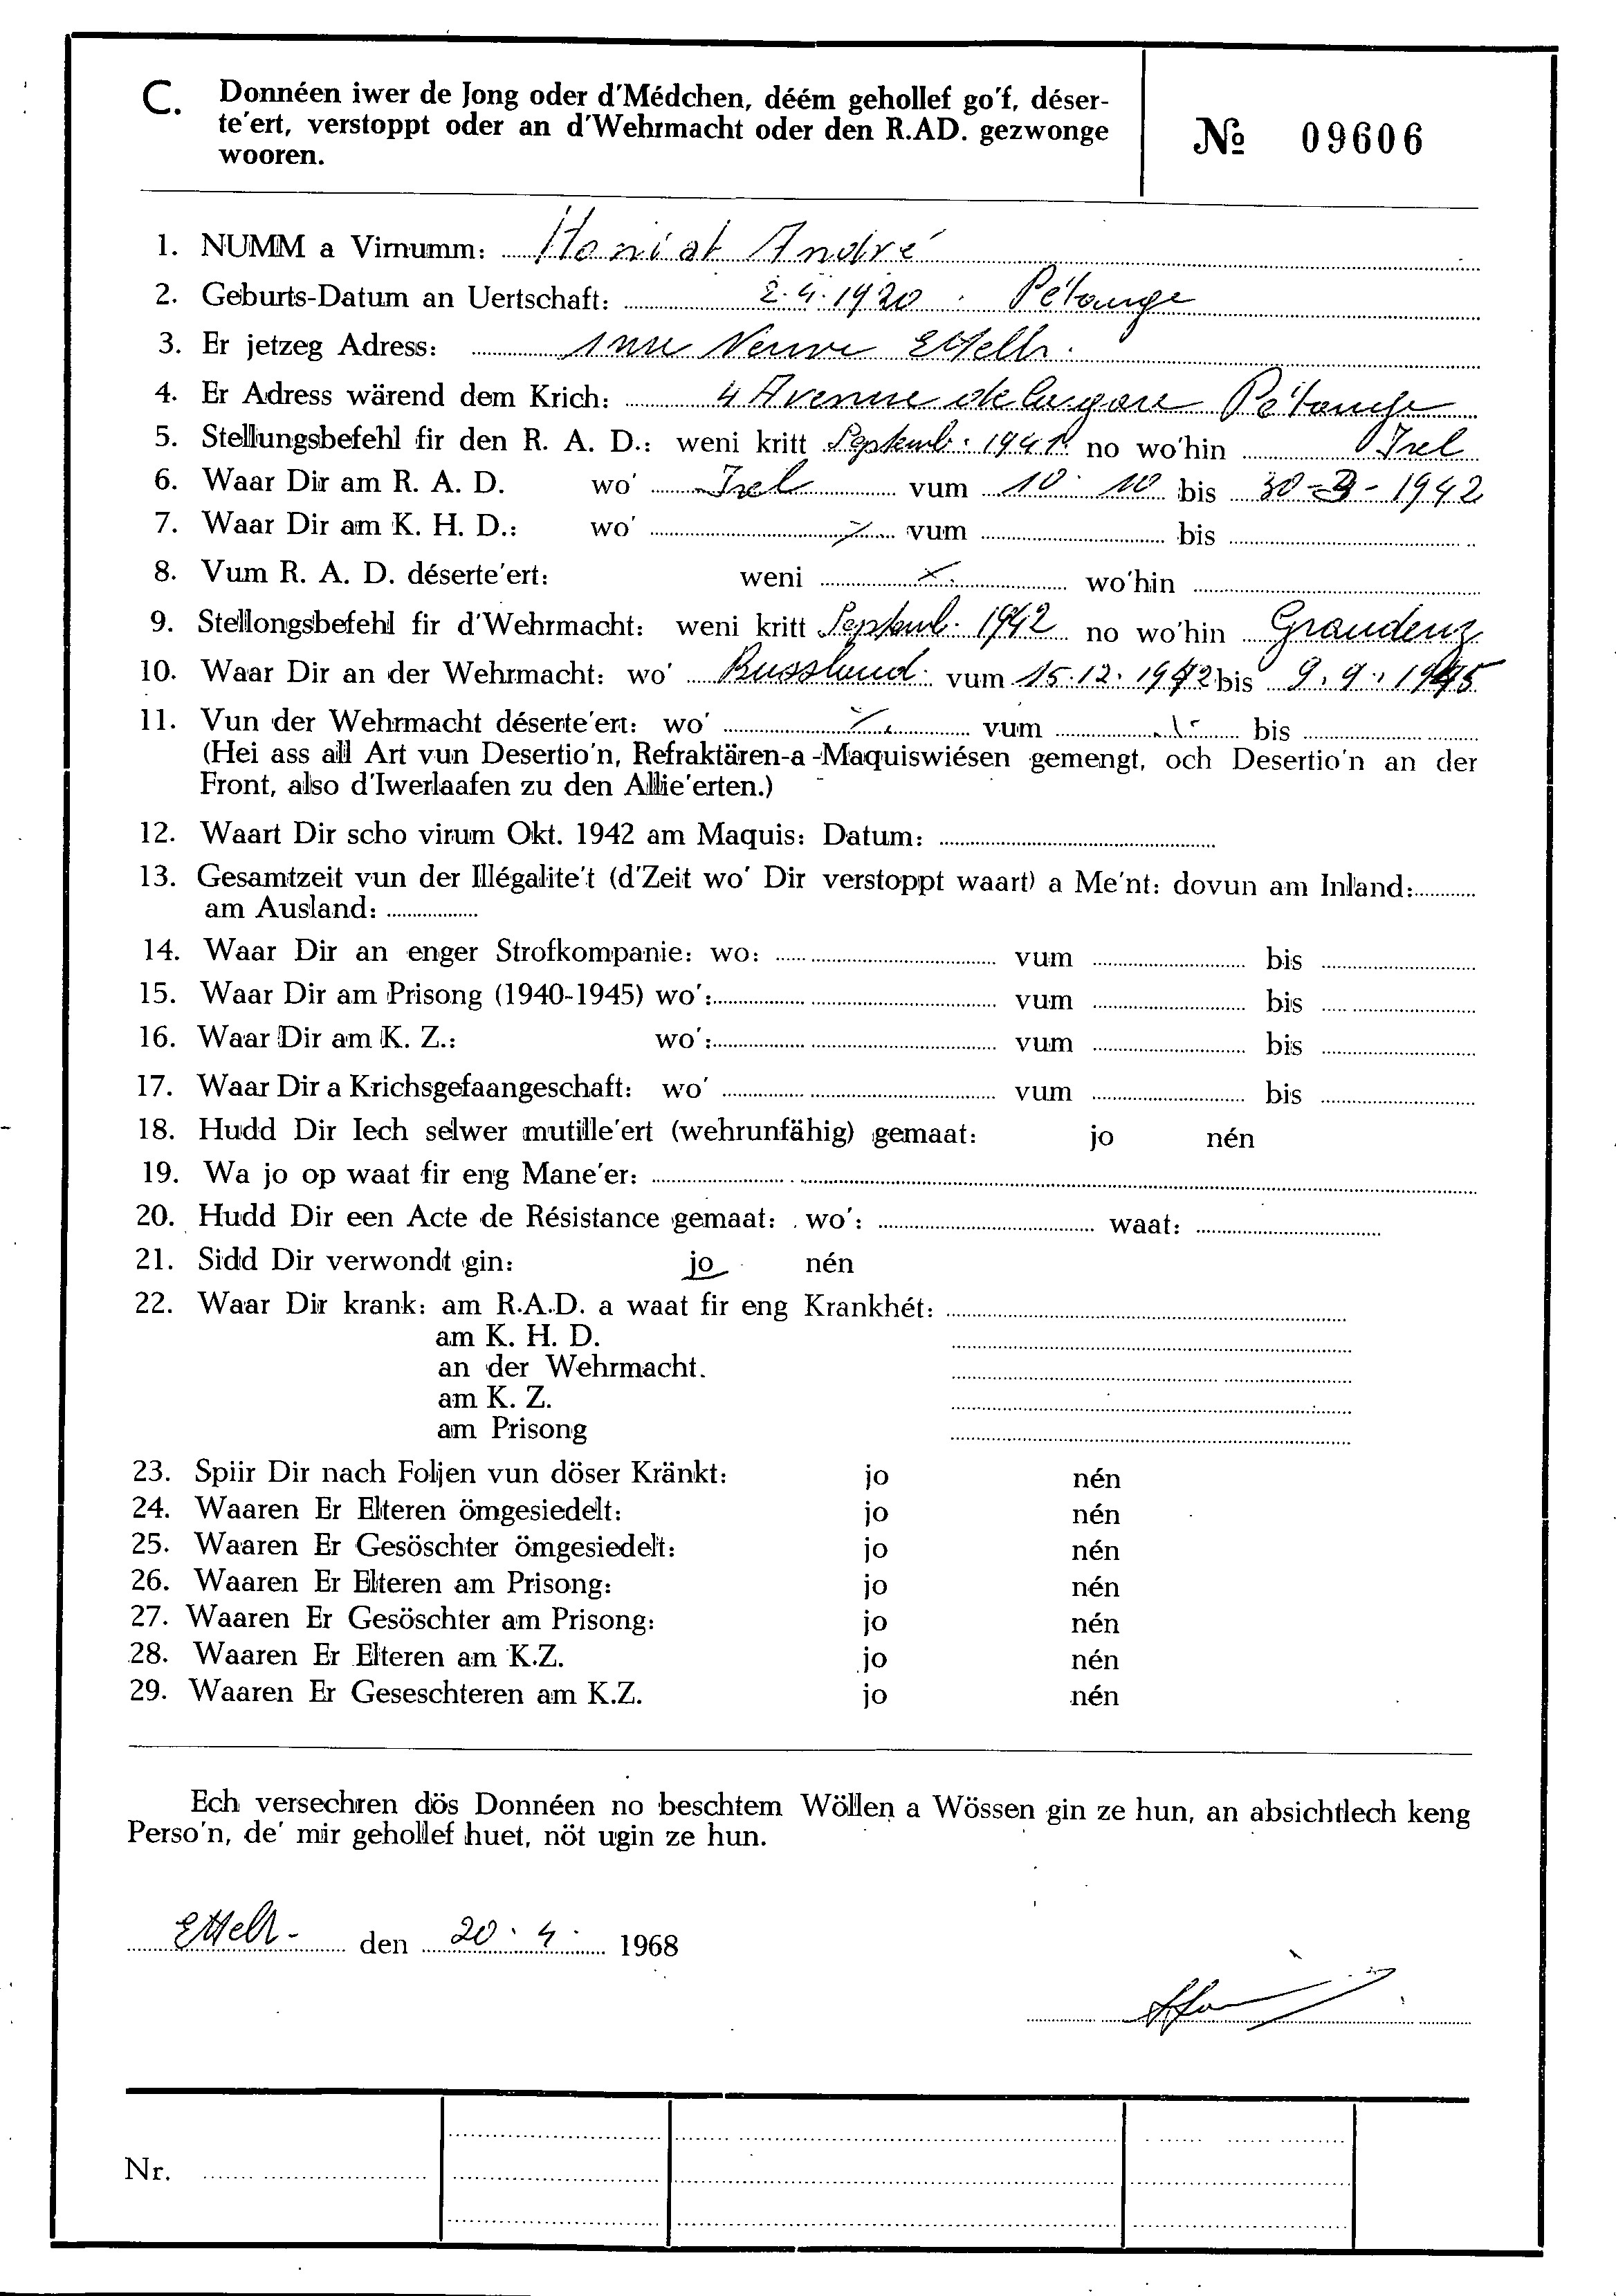 C. Donnéen iwer de Jong oder d'Médchen, déém gehollef go'f, déser-
te'ert, verstoppt oder an d'Wehrmacht oder den R.AD. gezwonge
wooren.
№ 09606
1. NUMM a Virnumm: Honiat André
2. Geburts-Datum an Uertschaft: 2.4.1920. Pétange
3. Er jetzeg Adress: 1 rue Neuve Ettelb.
4. Er Adress wärend dem Krich: 4 Avenue de la gare Pétange
5. Stellungsbefehl fir den R. A. D.: weni kritt Septemb. 1941 no wo'hin Isel
6. Waar Dir am R. A. D. wo' Isel vum 10. 10 bis 30-3-1942
7. Waar Dir am K. H. D.: wo' vum bis
8. Vum R. A. D. déserte'ert: weni x wo'hin
9. Stellongsbefehl fir d'Wehrmacht: weni kritt Septemb. 1942 no wo'hin Graudenz
10. Waar Dir an der Wehrmacht: wo' Russland. vum 15.12.1942 bis 9.9.1945
11. Vun der Wehrmacht déserte'ert: wo' vum bis
(Hei ass all Art vun Desertio'n, Refraktären-a-Maquiswiésen gemengt, och Desertio'n an der
Front, also d'Iwerlaafen zu den Allie'erten.)
12. Waart Dir scho virum Okt. 1942 am Maquis: Datum:
13. Gesamtzeit vun der Illégalite't (d'Zeit wo' Dir verstoppt waart) a Me'nt: dovun am Inland:
am Ausland:
14. Waar Dir an enger Strofkompanie: wo: vum bis
15. Waar Dir am Prisong (1940-1945) wo': vum bis
16. Waar Dir am K. Z.: wo': vum bis
17. Waar Dir a Krichsgefaangeschaft: wo' vum bis
18. Hudd Dir Iech selwer mutille'ert (wehrunfähig) gemaat: jo nén
19. Wa jo op waat fir eng Mane'er:
20. Hudd Dir een Acte de Résistance gemaat: wo': waat:
21. Sidd Dir verwondt gin: jo nén
22. Waar Dir krank: am R.A.D. a waat fir eng Krankhét:
am K. H. D.
an der Wehrmacht.
am K. Z.
am Prisong
23. Spiir Dir nach Foljen vun döser Kränkt: jo nén
24. Waaren Er Elteren ömgesiedelt: jo nén
25. Waaren Er Gesöschter ömgesiedelt: jo nén
26. Waaren Er Elteren am Prisong: jo nén
27. Waaren Er Gesöschter am Prisong: jo nén
28. Waaren Er Elteren am K.Z. jo nén
29. Waaren Er Geseschteren am K.Z. jo nén
Ech versechren dös Donnéen no beschtem Wöllen a Wössen gin ze hun, an absichtlech keng
Perso'n, de' mir gehollef huet, nöt ugin ze hun.
Ettelb- den 20.4. 1968
Nr.